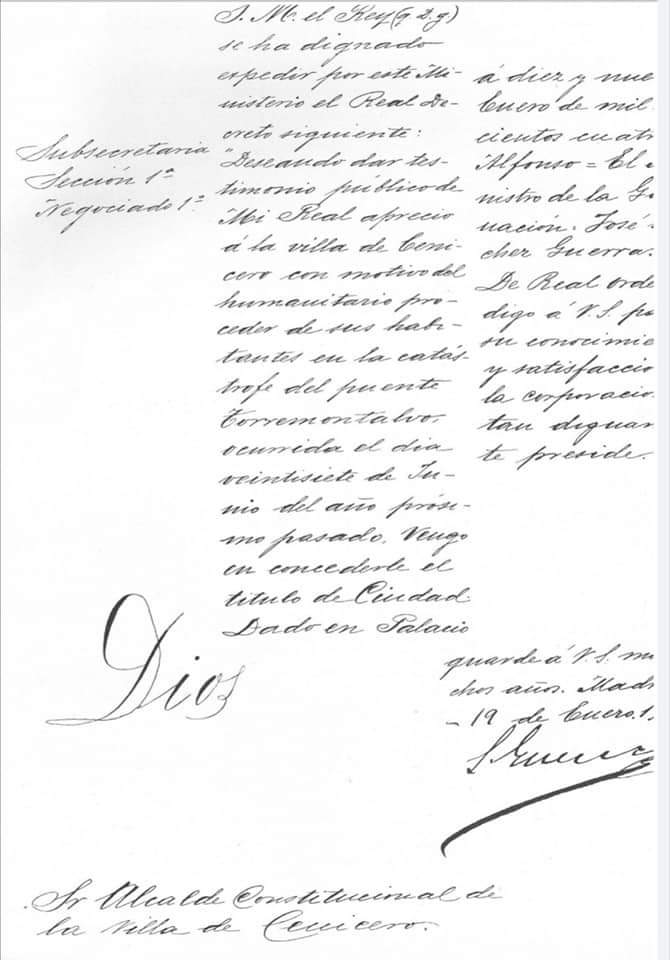 Subsecretaria
Sección 1ª
Negociado 1º
S. M. el Rey (q. D. g.)
se ha dignado
expedir por este Mi-
nisterio el Real De-
creto siguiente:
"Deseando dar tes-
timonio público de
Mi Real aprecio
á la villa de Ceni-
cero con motivo del
humanitario pro-
ceder de sus habi-
tantes en la catás-
trofe del puente
Torremontalvo,
ocurrida el dia
veintisiete de Ju-
nio del año próxi-
mo pasado, Vengo
en concederle el
titulo de Ciudad.
Dado en Palacio
á diez y nue
Enero de mil
cientos cuatr
Alfonso = El
nistro de la Go
nación. José
cher Guerra.
De Real orde
digo á V. S. pa
su conocimie
y satisfaccio
la corporacio
tan dignam
te preside.
Dios
guarde á V. S. mu
chos años. Madr
- 19 de Enero. 1.
S Guerra
Sr Alcalde Constitucional de
la Villa de Cenicero.